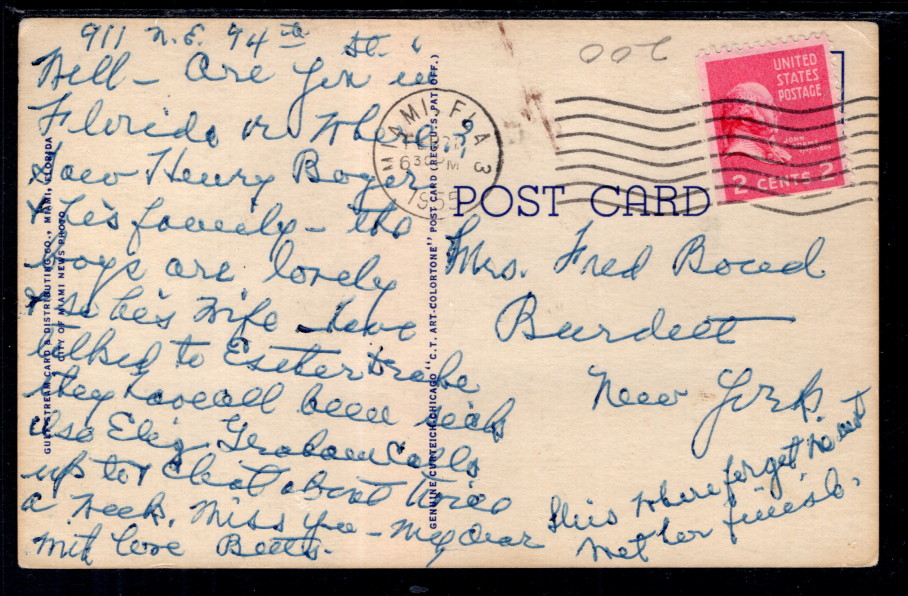 911 N.E. 94th St.
Well - Are you in
Florida or where?
Saw Henry Boger
& his family - the
boys are lovely
& so his wife - have
talked to Esther
they have all been sick
also Eliz Graham calls
up to chat about twice
a week. Miss you - my dear
with love Betts.
GULF STREAM CARD & DISTRIBUTING CO., MIAMI, FLORIDA
CITY OF MIAMI NEWS PHOTO
GENUINE CURTEICH-CHICAGO "C.T. ART-COLORTONE" POST CARD (REG. U.S. PAT. OFF.)
002
MIAMI, FLA. 3
630 PM
1955
UNITED
STATES
POSTAGE
JOHN
2 CENTS 2
POST CARD
Mrs. Fred Bowd
Burdett
New York
this where forget